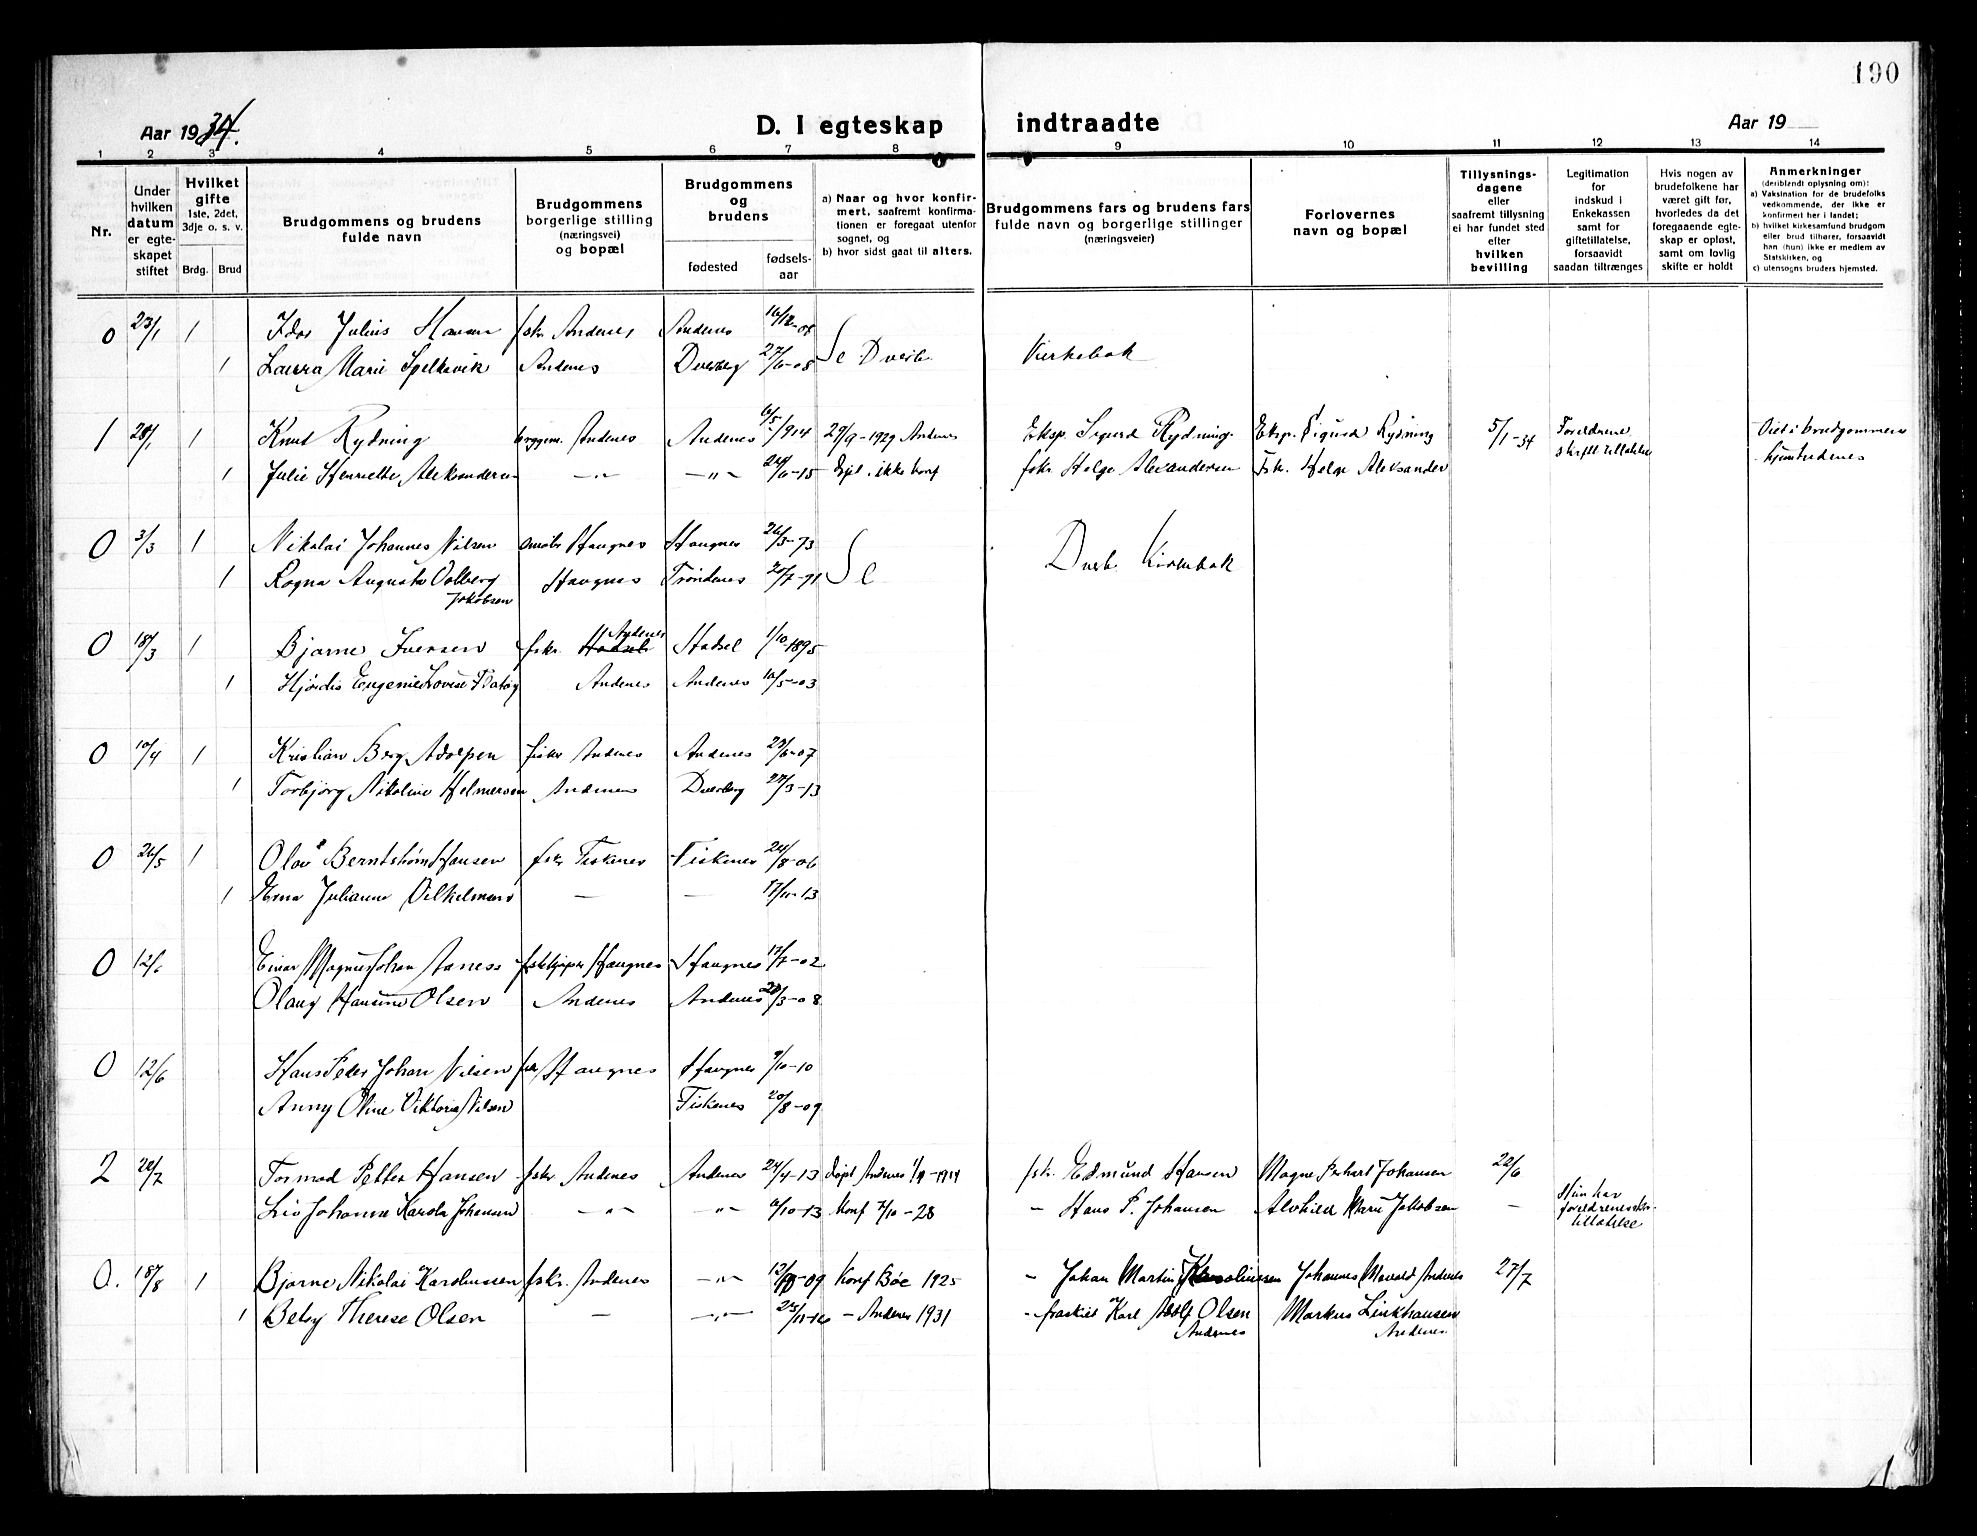 190
Aar 1934.
D. I egteskap indtraadte
Aar 19
1 2 3 4 5 6 7 8 9 10 11 12 13 14
Nr.
Under hvilken datum er egte- skapet stiftet
Hvilket gifte 1ste, 2det, 3dje o. s. v.
Brdg. Brud
Brudgommens og brudens fulde navn
Brudgommens borgerlige stilling (næringsvei) og bopæl
Brudgommens og brudens
fødested fødsels- aar
a) Naar og hvor konfir- mert, saafremt konfirma- tionen er foregaat utenfor sognet, og
b) hvor sidst gaat til alters.
Brudgommens fars og brudens fars fulde navn og borgerlige stillinger (næringsveier)
Forlovernes navn og bopæl
Tillysnings- dagene eller saafremt tillysning ei har fundet sted efter hvilken bevilling
Legitimation for indskud i Enkekassen samt for giftetillatelse, forsaavidt saadan tiltrænges
Hvis nogen av brudefolkene har været gift før, hvorledes da det foregaaende egte- skap er opløst, samt om lovlig skifte er holdt
Anmerkninger (deriblandt oplysning om):
a) Vaksination for de brudefolks vedkommende, der ikke er konfirmert her i landet;
b) hvilket kirkesamfund brudgom eller brud tilhører, forsaavidt han (hun) ikke er medlem av Statskirken, og
c) utensogns bruders hjemsted.
0 23/1 1 Julius Hansen fskr Andenes Andenes 16/12-08
1 Laura Marie Andenes Dverberg 27/6-08 Se Dverb. Kirkebok
1 28/1 1 Knut Rydning Andenes Andenes 6/5-1914 29/9-1929 Andenes Eksp. Sigurd Rydning Eksp. Sigurd Rydning 5/1-34 Foreldrene skriftl tillatelse Viet i brudgommens
1 Julie Henriette Aleksandersen -"- -"- 24/6-15 ikke konf fskr Helge Alexandersen Fsk. Helge Aleksander
0 3/3 1 Nikolai Johannes Nilsen Haugnes Haugnes 26/3-73 Se Dverb. Kirkebok
1 Ragna Augusta Volberg Jakobsen Haugnes Trondenes 20/7-71
0 18/3 1 Bjarne Iversen fskr. Hadsel Andenes Hadsel 1/10-1895
1 Hjørdis Eugenie Lovise Andenes Andenes 10/5-03
0 10/4 1 Kristian Berg fisker Andenes Andenes 23/6-07
1 Torbjørg Nikoline Helmersen Andenes Dverberg 27/3-13
0 26/5 1 Olav Berntstrøm Hansen fskr Fiskenes Fiskenes 24/8-06
1 Erna Julianne — — 17/11-13
0 12/6 Einar Magnus Johan Aanes Haugnes Haugnes 17/7-02
Olaug Hansine Olsen Andenes Andenes 28/3-08
0 12/6 Hans Peder Johan Nilsen fskr Haugnes Haugnes 9/10-10
Anny Oline Viktoria Nilsen Fiskenes 20/8-09
2 20/7 Tormod Petter Hansen fskr Andenes Andenes 24/4-13 Døpt Andenes fskr. Edmund Hansen Magne Johansen 22/6
Johanne Karola Johansen -"- -"- 6/10-13 Konf 7/10-28 - Hans P. Johansen Alvhild Marie Jakobsen - Hun har foreldrenes tillatelse
0. 18/8 1 Bjarne Nikolai Karoliussen fskr. Andenes -"- Konf Bøe 1925 - Johan Martin Johannes Andenes 27/7
1 Betsy Therese Olsen — -"- 25/11-16 - Andenes 1931 Karl Adolf Olsen Andenes Markus Linkhausen Andenes